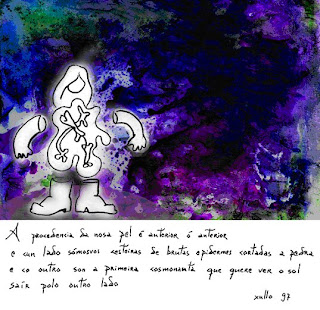 A procedencia da nosa pel é anterior ó anterior
e cun lado sómosvos costeiras de brutas epidermes cortadas a pedra
e co outro son a primeira cosmonauta que quere ver o sol
saír polo outro lado
xullo 97